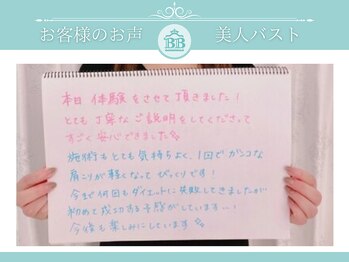 お客様のお声
BB
美人バスト
本日 体験をさせて頂きました!
とても丁寧なご説明をしてくださって
すごく安心できました
施術もとても気持ちよく、1回でガンコな
肩こりが軽くなってびっくりです!
今まで何回もダイエットに失敗してきましたが
初めて成功する予感がしています…!
今後も楽しみにしています